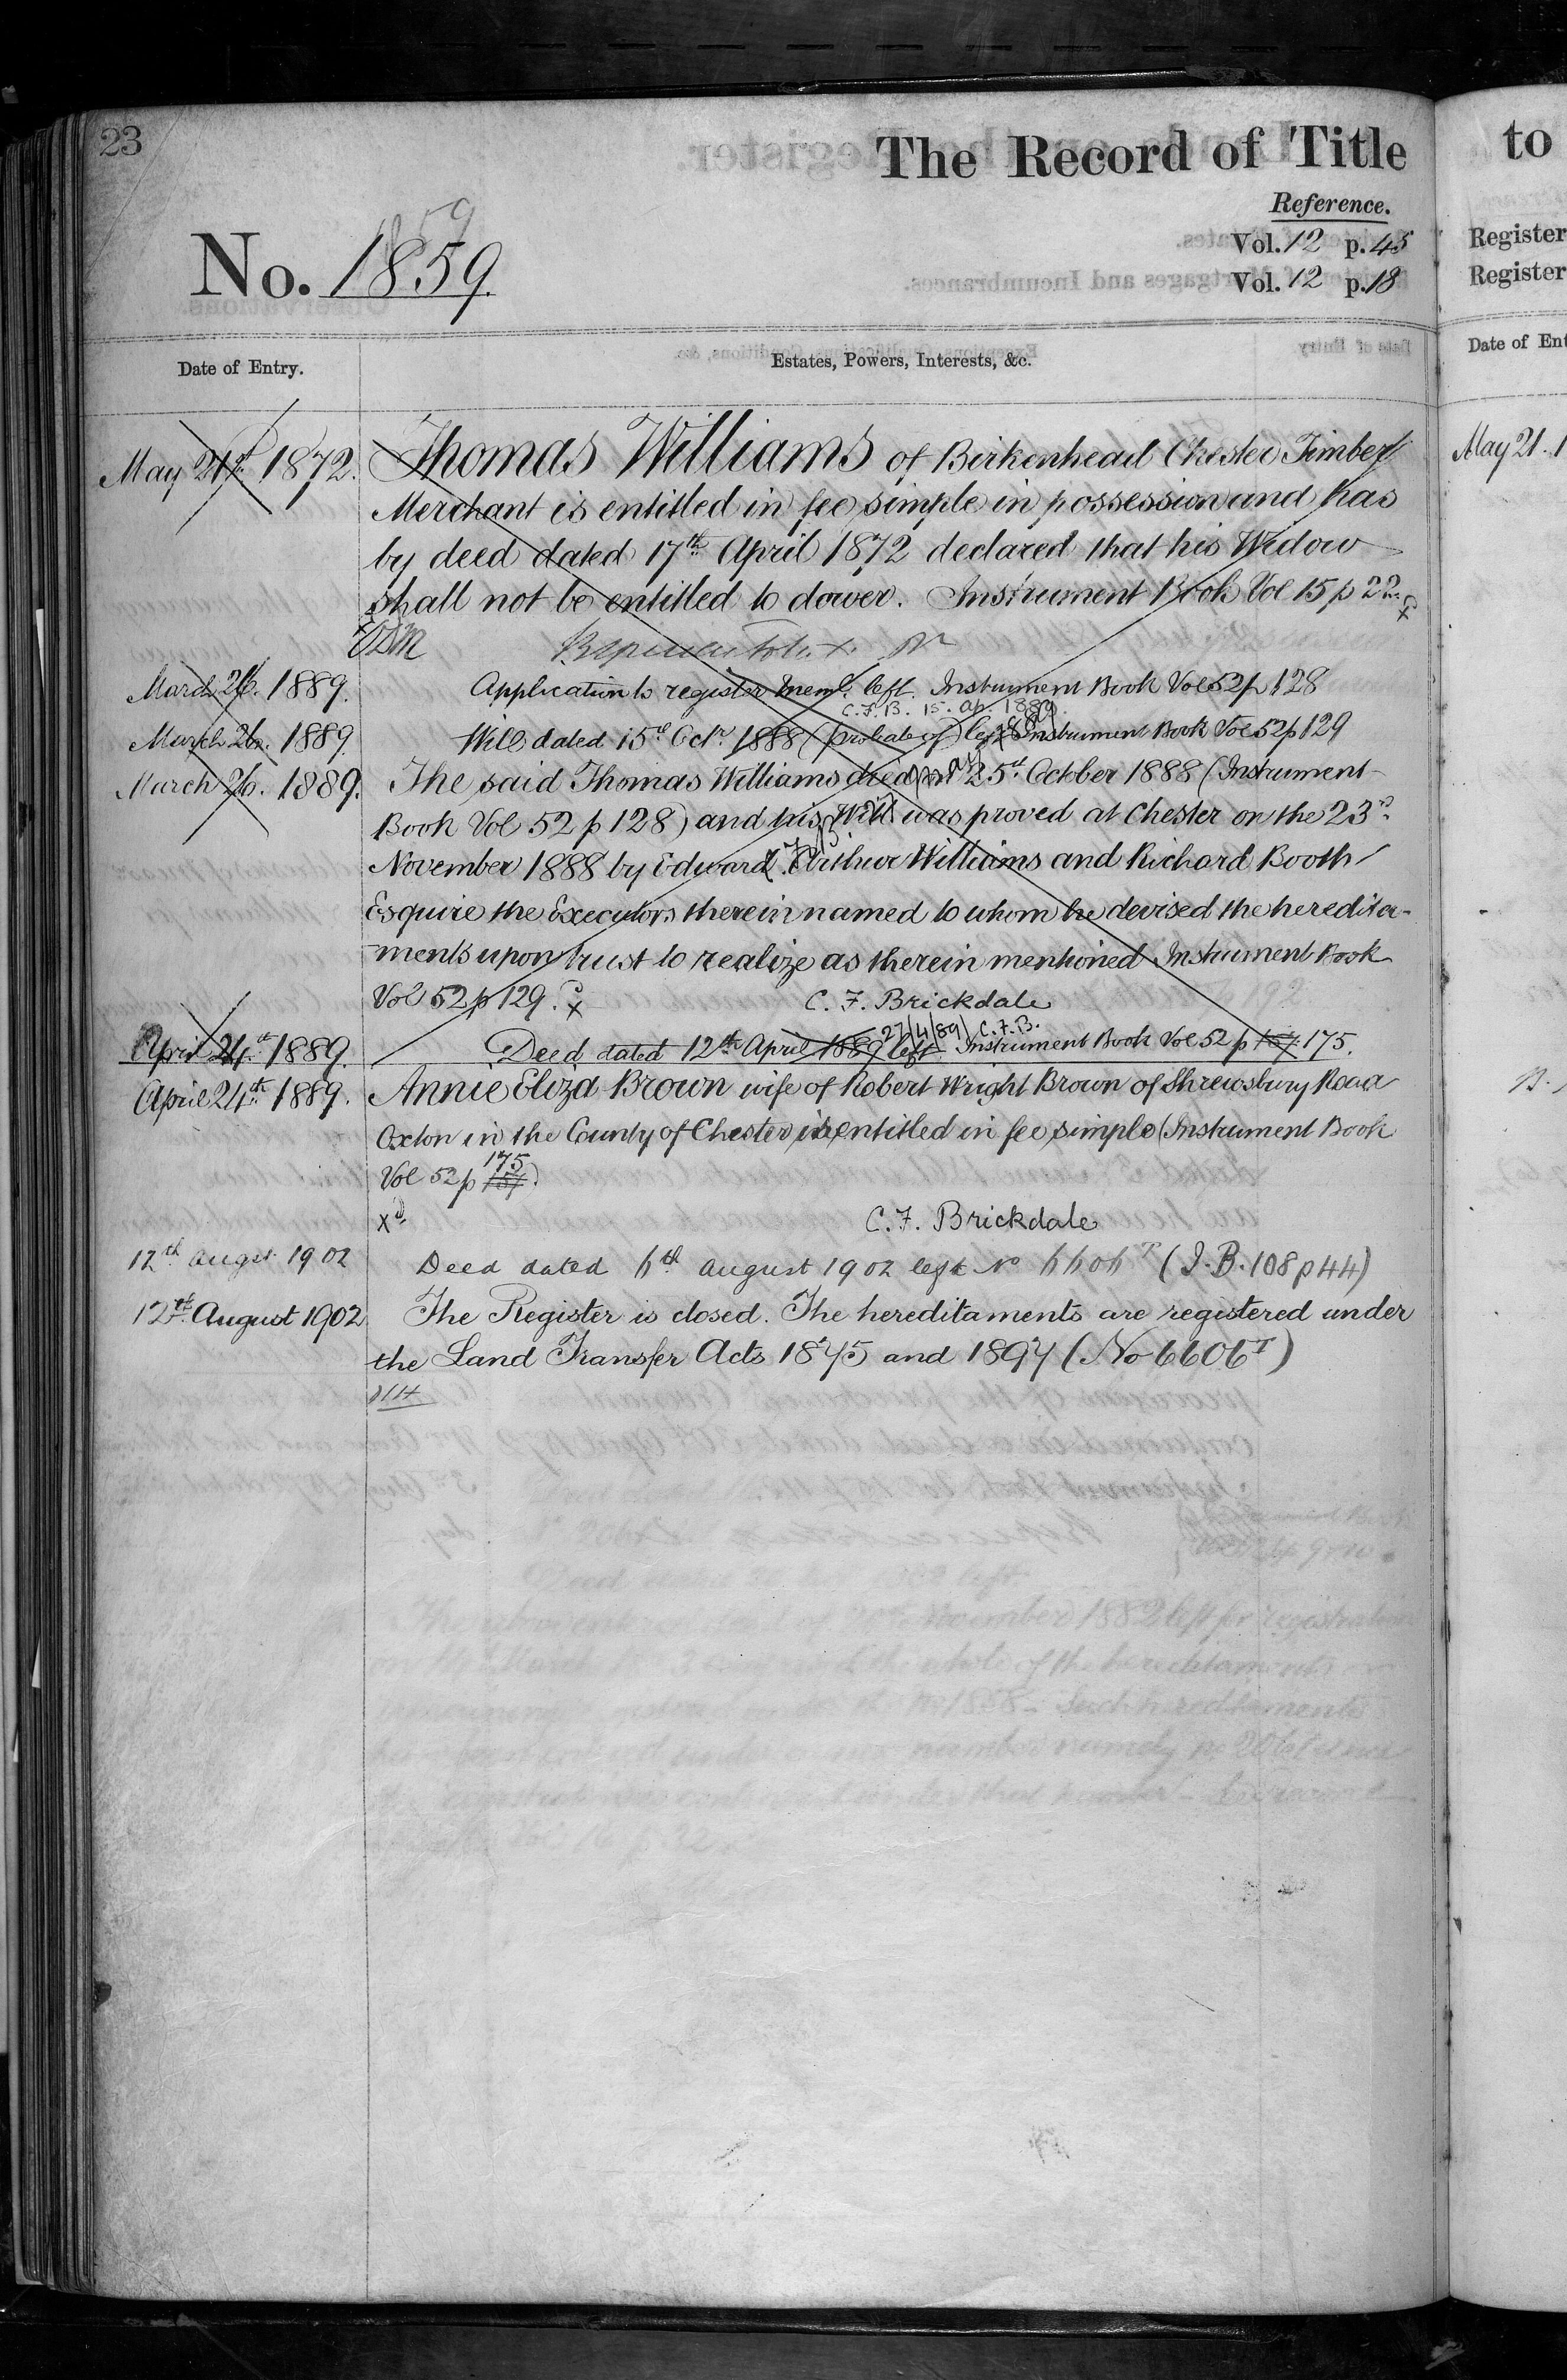 23
The Record of Title
Reference.
Vol. 12 p. 45
Vol. 12 p. 18
No. 1859.
Date of Entry.
Estates, Powers, Interests, &c.
May 21st 1872. Thomas Williams of Birkenhead Chester Timber
Merchant is entitled in fee simple in possession and has
by deed dated 17th April 1872 declared that his Widow
shall not be entitled to dower. Instrument Book Vol 15 p 22.
March 26. 1889. Application to register Meml. left. Instrument Book Vol 52 p 128
C.F.B. 15. Ap. 1889
March 26. 1889. Will dated 15th Octr. 1888 (probate of) left Instrument Book Vol 52 p 129
March 26. 1889. The said Thomas Williams died on 25th October 1888 (Instrument
Book Vol 52 p 128) and his Will was proved at Chester on the 23rd
November 1888 by Edward Arthur Williams and Richard Booth
Esquire the Executors therein named to whom he devised the heredita-
ments upon trust to realize as therein mentioned Instrument Book
Vol 52 p 129.
C. F. Brickdale
27/4/89 C.F.B.
April 24th 1889. Deed dated 12th April 1889 left Instrument Book Vol 52 p 175.
April 24th 1889. Annie Eliza Brown wife of Robert Wright Brown of Shrewsbury Road
Oxton in the County of Chester is entitled in fee simple (Instrument Book
175
Vol 52 p
xd
C. F. Brickdale
12th augst 1902 Deed dated 6th august 1902 left No 6606T (I.B. 108 p 44)
12th August 1902 The Register is closed. The hereditaments are registered under
the Land Transfer Acts 1875 and 1897 (No 6606T)
to
Register
Register
Date of Ent
May 21. 1